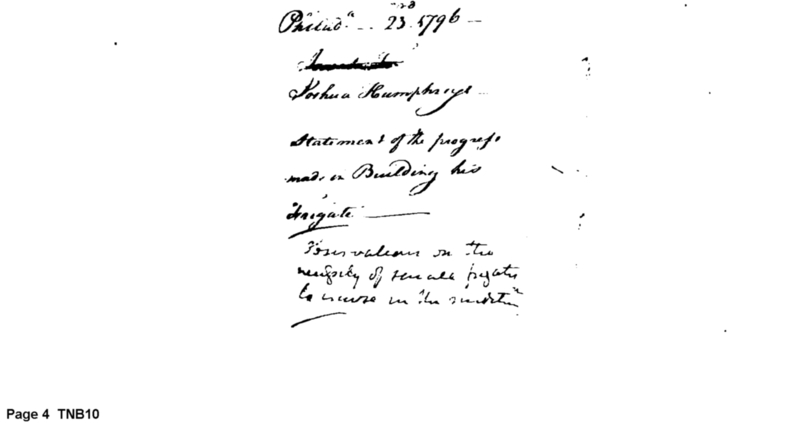 Philad.a -- 23 1796 --
Joshua Humphreys
Statement of the progress
made in Building his
Frigate
Observations on the
necessity of small frigates
to cruise in the
Page 4 TNB10